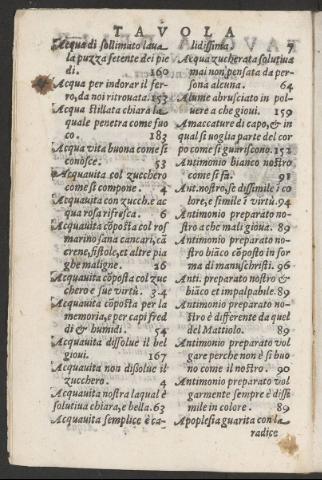 TAVOLA
Acqua di sollimato laua
la puzza fetente dei pie
di. 160
Acqua per indorar il fer-
ro, da noi ritrouata. 153
Acqua stillata chiara la
quale penetra come fuo
co. 183
Acqua vita buona come si
conosce. 53
Acquauita col zucchero
come si compone. 4
Acquauita con zucch. e ac
qua rosa rifresca. 6
Acquauita cõposta col ros
marino sana cancari, cã
crene, fistole, et altre pia
ghe maligne. 26
Acquauita cõposta col zuc
chero e sue virtù. 34
Acquauita cõposta per la
memoria, e per capi fred
di & humidi. 54
Acquauita dissolue il bel
gioui. 167
Acquauita non disolue il
zucchero. 4
Acquauita nostra laqual è
solutiua chiara, e bella. 63
Acquauita semplice è ca-
lidissima. 7
Acqua zucherata solutiua
mai non pensata da per-
sona alcuna. 64
Alume abrusciato in pol-
uere a che gioui. 159
Amaccature di capo, & in
qual si uoglia parte del cor
po come si guariscono. 152
Antimonio bianco nostro
come si fà. 91
Ant. nostro, se dissimile ĩ co
lore, e simile ĩ virtù. 94
Antimonio preparato no-
stro a che mali gioua. 89
Antimonio preparato no-
stro biãco cõposto in for
ma di manuschristi. 96
Anti. preparato nostro &
biãco et impalpabile. 89
Antimonio preparato no-
stro è differente da quel
del Mattiolo. 89
Antimonio preparato vol
gare perche non è sì buo
no come il nostro. 90
Antimonio preparato vol
garmente sempre è dissi
mile in colore. 89
Apoplesia guarita con la
radice